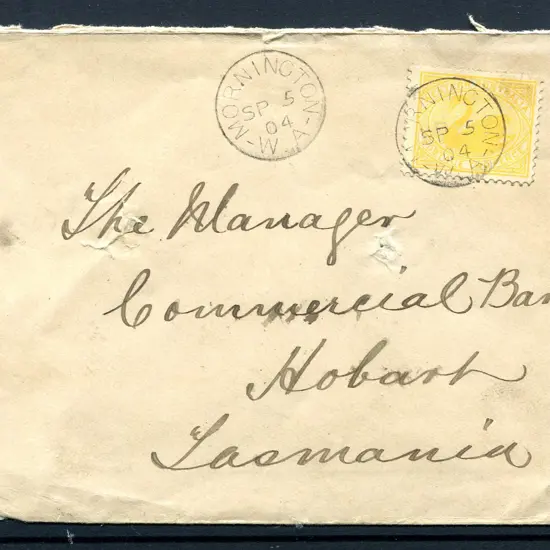 MORNINGTON
SP 5
04
W.A
ORNINGTON
SP 5
04
W.A
The Manager
Commercial Ban
Hobart
Tasmania